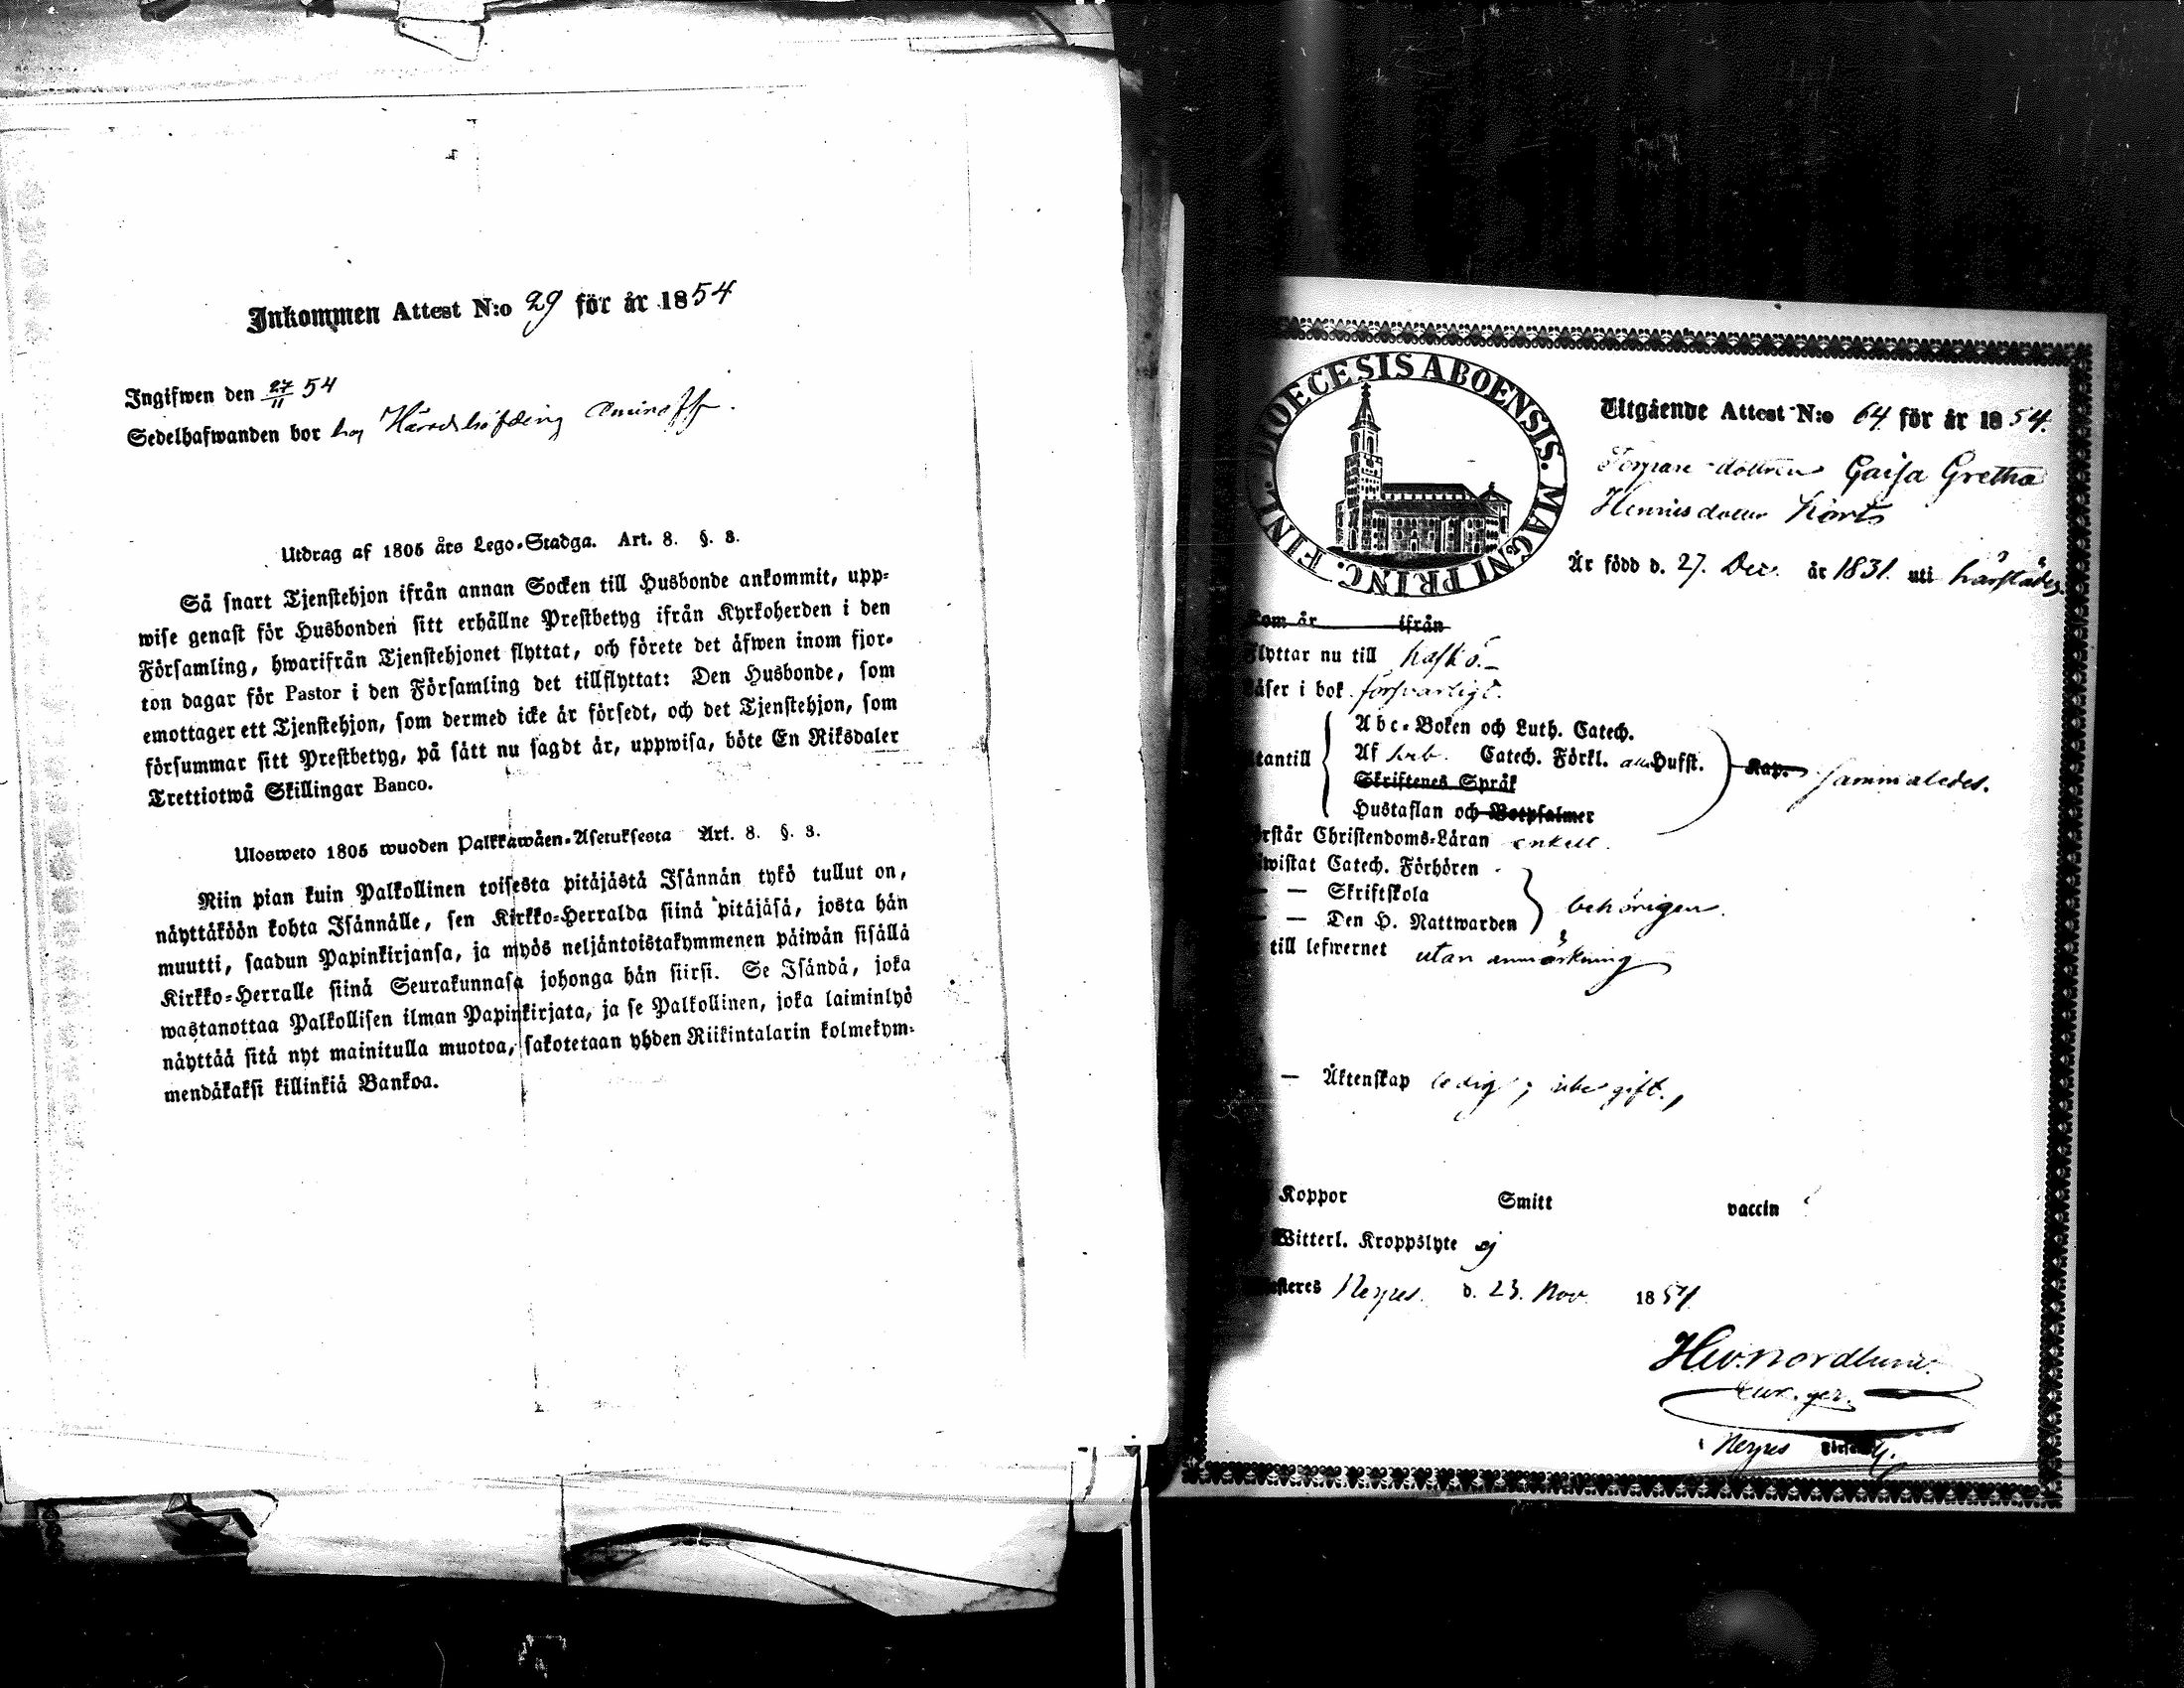 Inkommen Attest N:o 29 för år 1854
Ingifwen den 27/11 54
Sedelhafwanden bor hos Häradshöfding Aminoff.
Utdrag af 1805 års Lego-Stadga. Art. 8. §. 3.
Så snart Tjenstehjon ifrån annan Socken till Husbonde ankommit, upp-
wise genast för Husbonden sitt erhållne Prestbetyg ifrån Kyrkoherden i den
Församling, hwarifrån Tjenstehjonet flyttat, och förete det äfwen inom fjor-
ton dagar för Pastor i den Församling det tillflyttat: Den Husbonde, som
emottager ett Tjenstehjon, som dermed icke är försedt, och det Tjenstehjon, som
försummar sitt Prestbetyg, på sätt nu sagdt är, uppwisa, böte En Riksdaler
Trettiotwå Skillingar Banco.
Ulosweto 1805 wuoden Palkkawäen-Asetuksesta Art. 8. §. 3.
Niin pian kuin Palkollinen toisesta pitäjästä Isännän tykö tullut on,
näyttäköön kohta Isännälle, sen Kirkko-Herralda siinä pitäjäsä, josta hän
muutti, saadun Papinkirjansa, ja myös neljäntoistakymmenen päiwän sisällä
Kirkko-Herralle siinä Seurakunnasa johonga hän siirsi. Se Isändä, joka
wastanottaa Palkollisen ilman Papinkirjata, ja se Palkollinen, joka laiminlyö
näyttää sitä nyt mainitulla muotoa, sakotetaan yhden Riikintalarin kolmekym-
mendäkaksi killinkiä Bankoa.
DIOECESIS ABOENSIS. MAGNI PRINC. FINL.
Utgående Attest N:o 64 för år 1854.
Torpare dottren Caisa Gretha
Henricsdotter Körts
Är född d. 27. Dec. år 1831. uti härstädes
Kom år ifrån
Flyttar nu till
Läser i bok försvarligt.
Abc-Boken och Luth. Catech.
Utantill Af Catech. Förkl. Husfl. Kap. sammaledes.
Skriftenes Språk
Hustaflan och Botpsalmer
Förstår Christendoms-Läran enkelt.
Bewistat Catech. Förhören
— — Skriftskola
— — Den H. Nattwarden behörigen.
till lefwernet utan anmärkning
— Äktenskap ledig; icke gift.,
Koppor Smitt vaccin
Witterl. Kroppslyte ej
Nerpes d. 23. Nov. 1854
Nordlund.
Nerpes Församl.